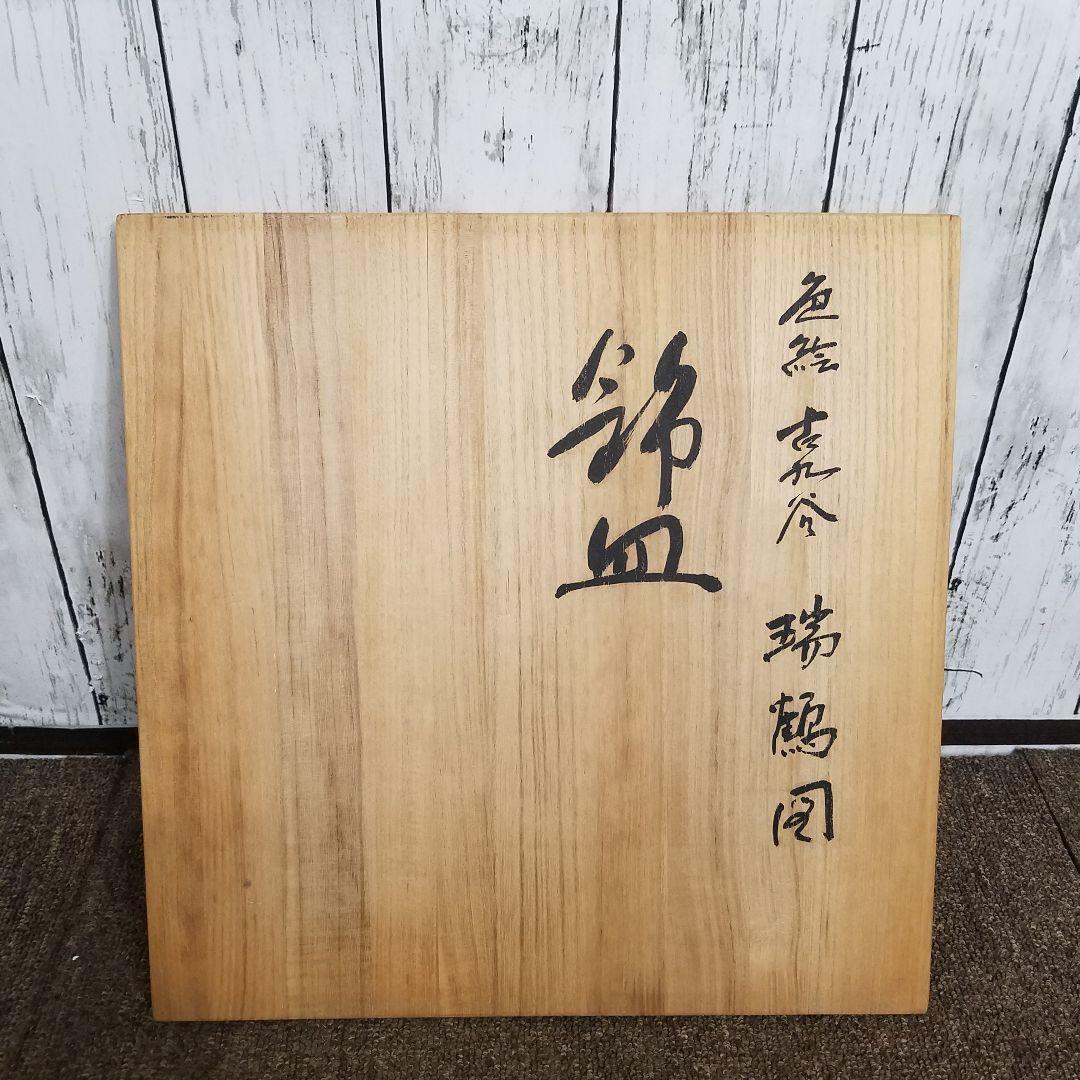 色絵 古九谷 瑞鶴図
飾皿